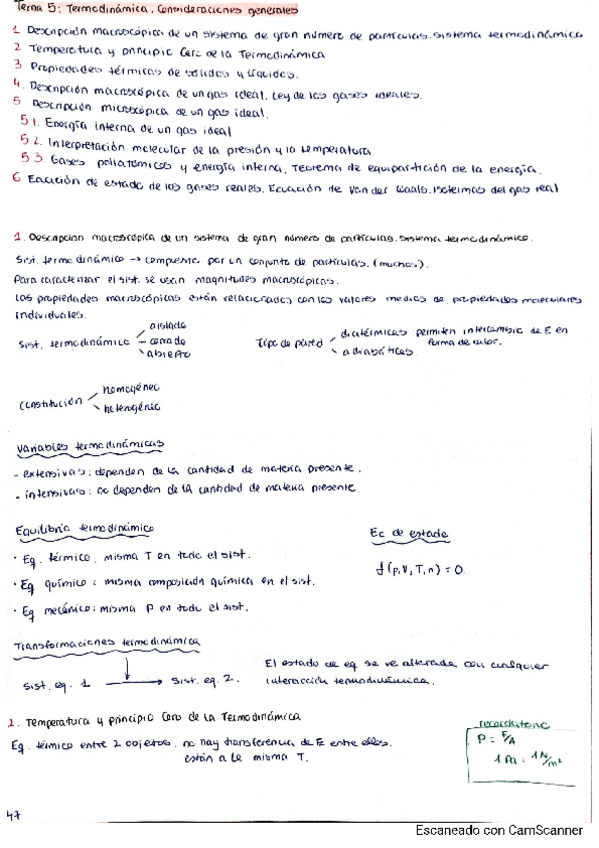 Tema 5: Termodinámica. Consideraciones generales
1 Descripción macroscópica de un sistema de gran número de partículas. sistema termodinámico
2 Temperatura y principio Cero de la Termodinámica
3 Propiedades térmicas de sólidos y líquidos.
4. Descripción macroscópica de un gas ideal. Ley de los gases ideales.
5 Descripción microscópica de un gas ideal.
5 1. Energía interna de un gas ideal
5 2. Interpretación molecular de la presión y la temperatura
5 3 Gases poliatómicos y energía interna, Teorema de equipartición de la energía.
6 Ecuación de estado de los gases reales. Ecuación de Van der Waals. Isotermas del gas real
1. Descripción macroscópica de un sistema de gran número de partículas. sistema termodinámico.
Sist. termodinámico → compuesto por un conjunto de partículas. (muchas).
Para caracterizar el sist. se usan magnitudes macroscópicas.
Las propiedades macroscópicas están relacionadas con los valores medios de propiedades moleculares
individuales.
Sist. termodinámico aislado cerrado abierto
Tipo de pared diatérmicas permiten intercambio de E en
forma de calor.
adiabáticas.
Constitución homogéneo heterogéneo
Variables termodinámicas
- extensivas: dependen de la cantidad de materia presente.
- intensivas: no dependen de la cantidad de materia presente
Equilibrio termodinámico
· Eq. térmico. misma T en todo el sist.
· Eq químico: misma composición química en el sist.
· Eq mecánico: misma P en todo el sist.
Ec de estado
f(p,V,T,n) = 0
Transformaciones termodinámica
Sist. eq. 1 → Sist. eq 2.
El estado de eq se ve alterada con cualquier
interacción termodinámica.
2. Temperatura y principio Cero de la Termodinámica
Eq. térmico entre 2 objetos. no hay transferencia de E entre ellos.
están a la misma T.
P = F/A
1 Pa = 1 N/m²
47
Escaneado con CamScanner